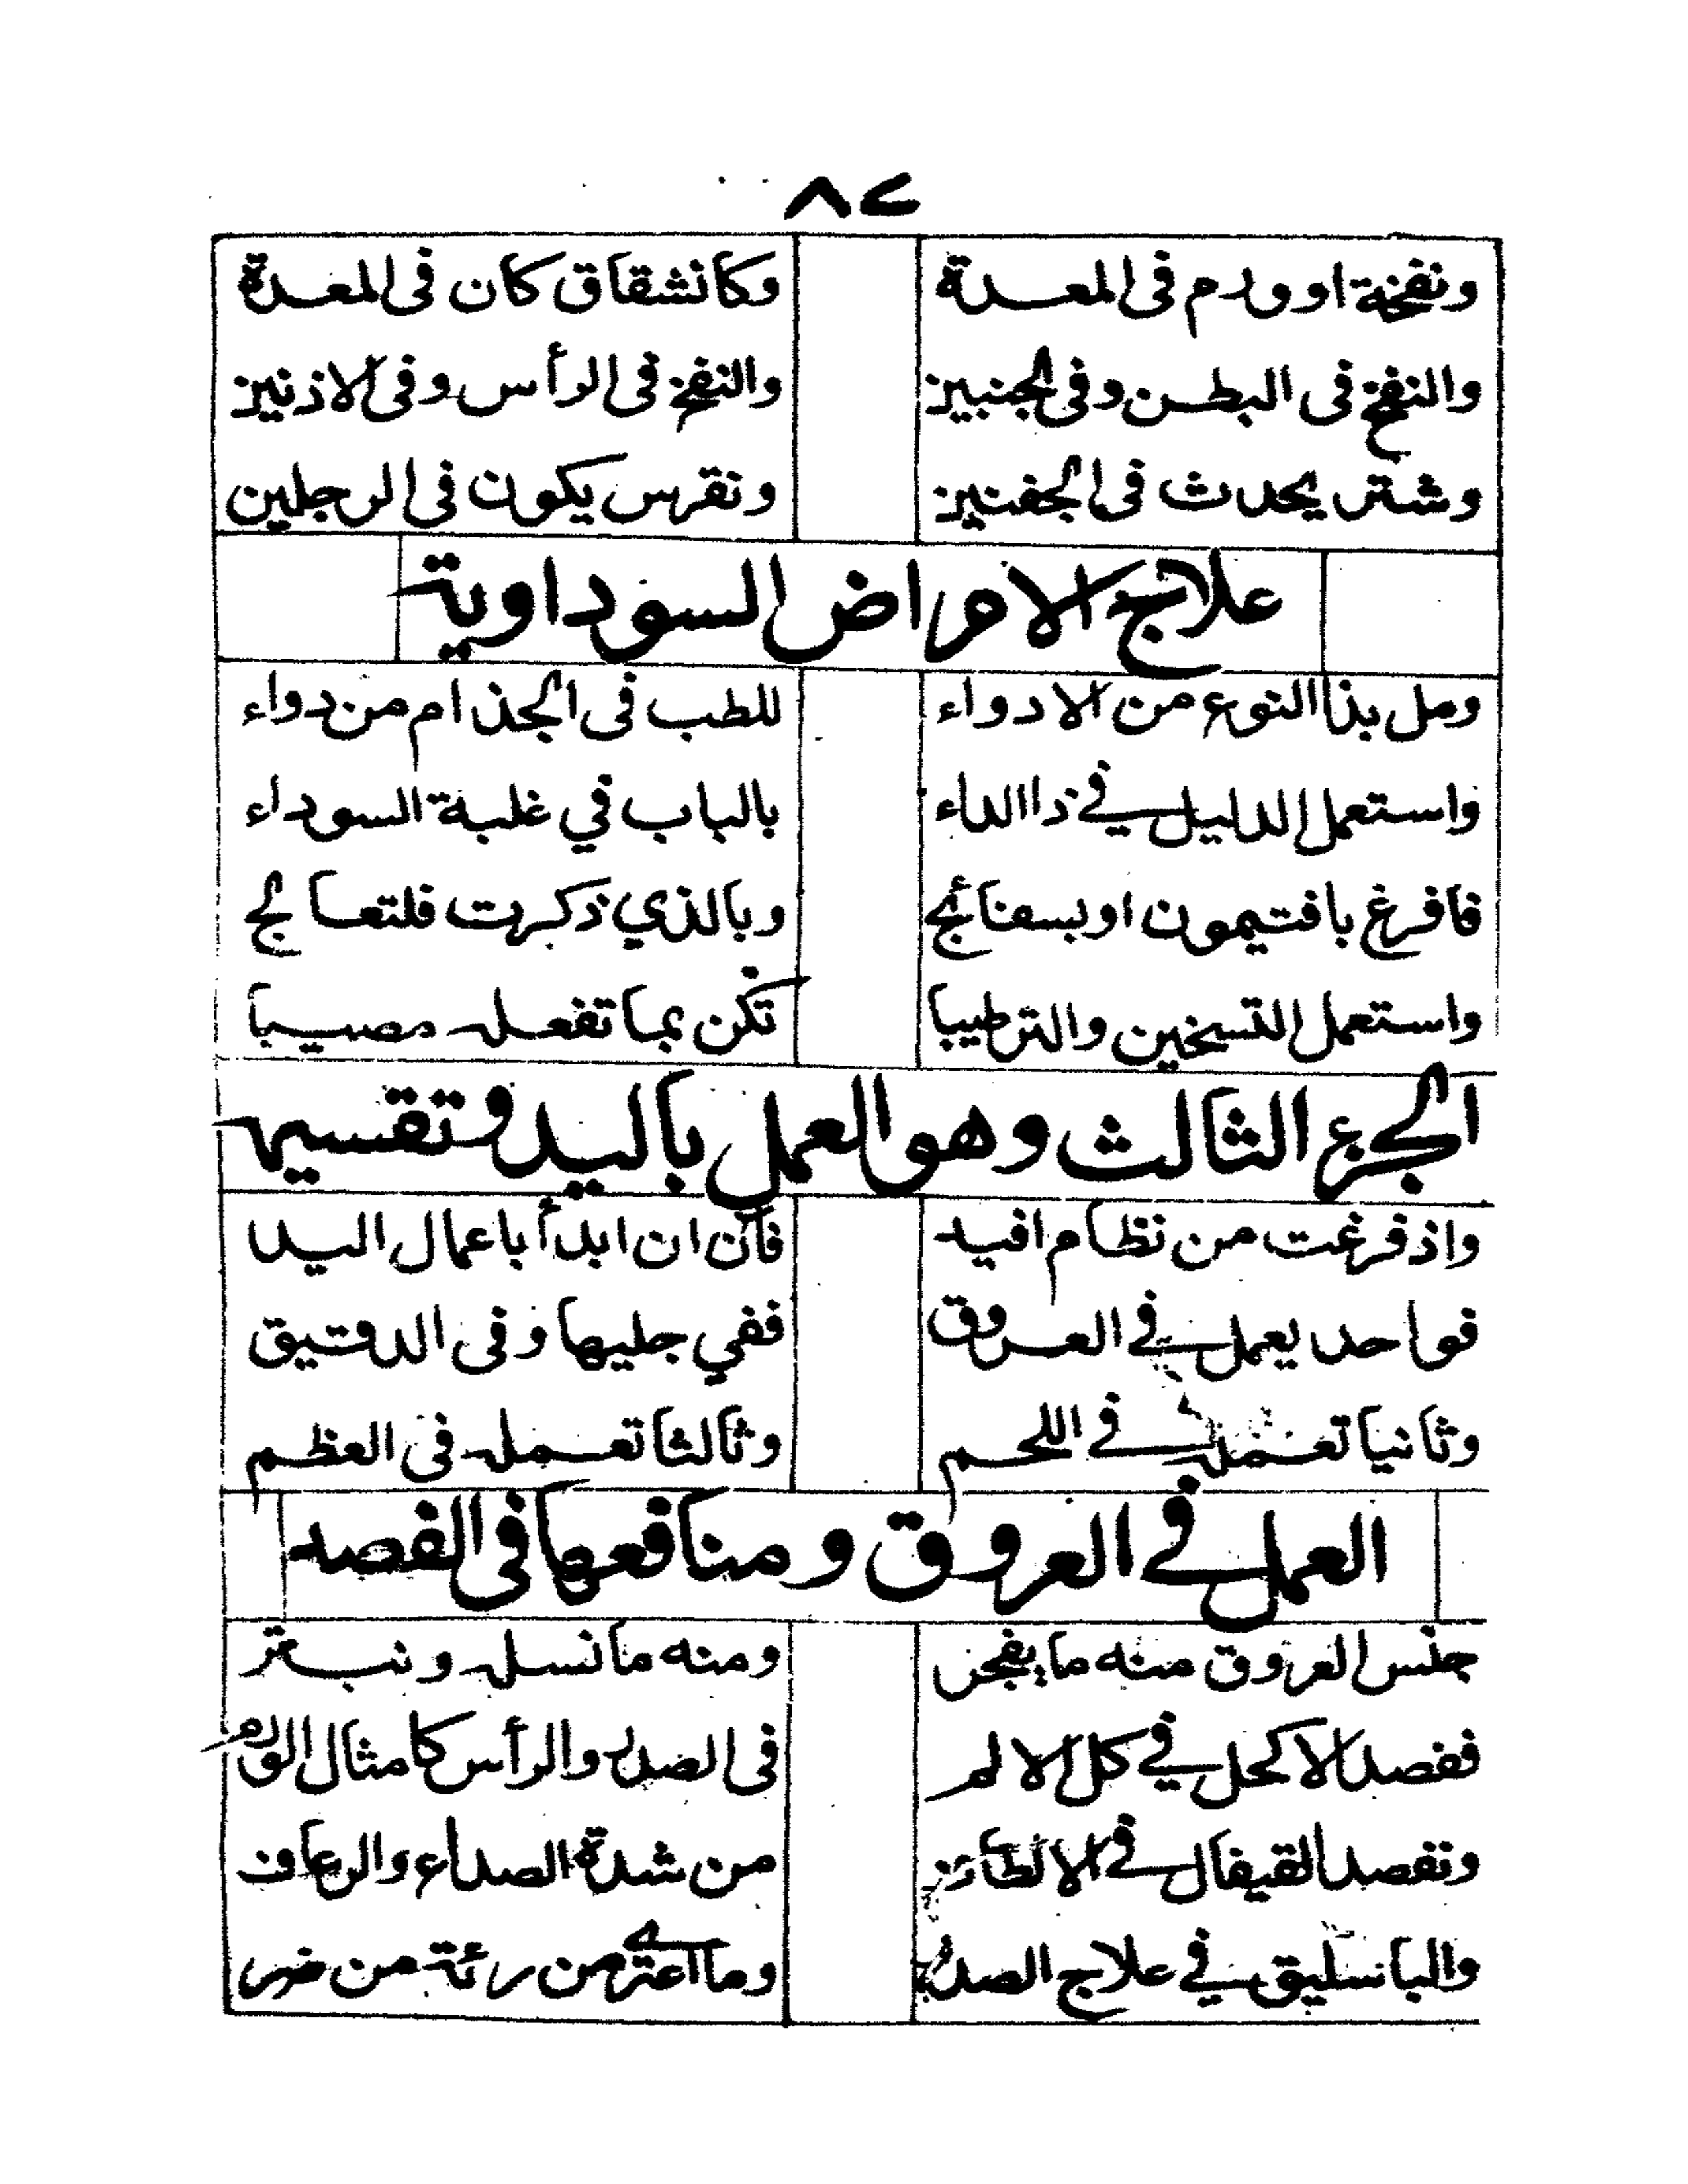 ٨٧
ونفخة او ورم فى المعدة وكانشقاق كان فى المعدة
والنفخ فى البطن وفى الجنبين والنفخ فى الرأس وفى الاذنين
وشتر يحدث فى الجفنين ونقرس يكون فى الرجلين
علاج الامراض السوداوية
ومل بذا النوع من الادواء للطب فى الجذام من دواء
واستعمل الدليل في ذا الداء بالباب في غلبة السوداء
فافرغ بافتيمون او بسفنائج وبالذي ذكرت فلتعالج
واستعمل التسخين والترطيبا تكن بما تفعله مصيبا
الجزء الثالث وهو العمل باليد وتقسيمه
واذ فرغت من نظام افيد فأن ان ابدأ باعمال اليد
فواحد يعمل في العروق ففي جليها وفى الدقيق
وثانيا تعمله في اللحم وثالثا تعمله فى العظم
العمل في العروق ومنافعها فى الفصد
جنس العروق منه ما يفجر ومنه ما نسله ونبتر
ففصد الاكحل في كل الالم فى الصدر والرأس كامثال الورم
وتفصد القيفال في من شدة الصداع والرعاف
والباسليق في علاج الصدر وما اعترى من رئة من ضر